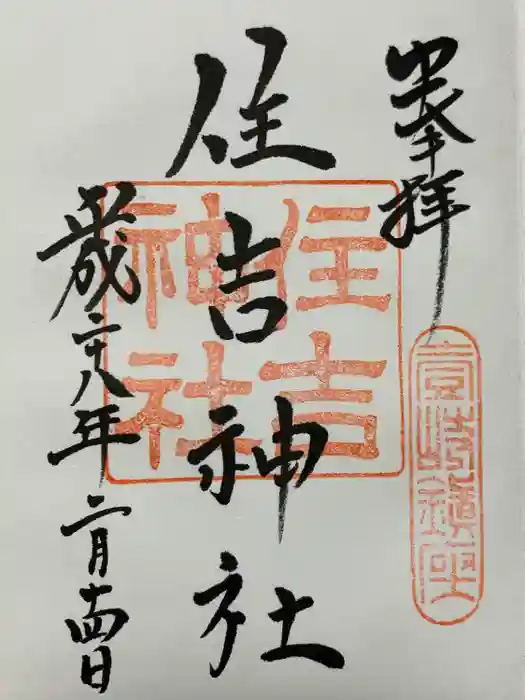 奉拝
住吉神社
住吉
神社
平成二十八年二月十四日